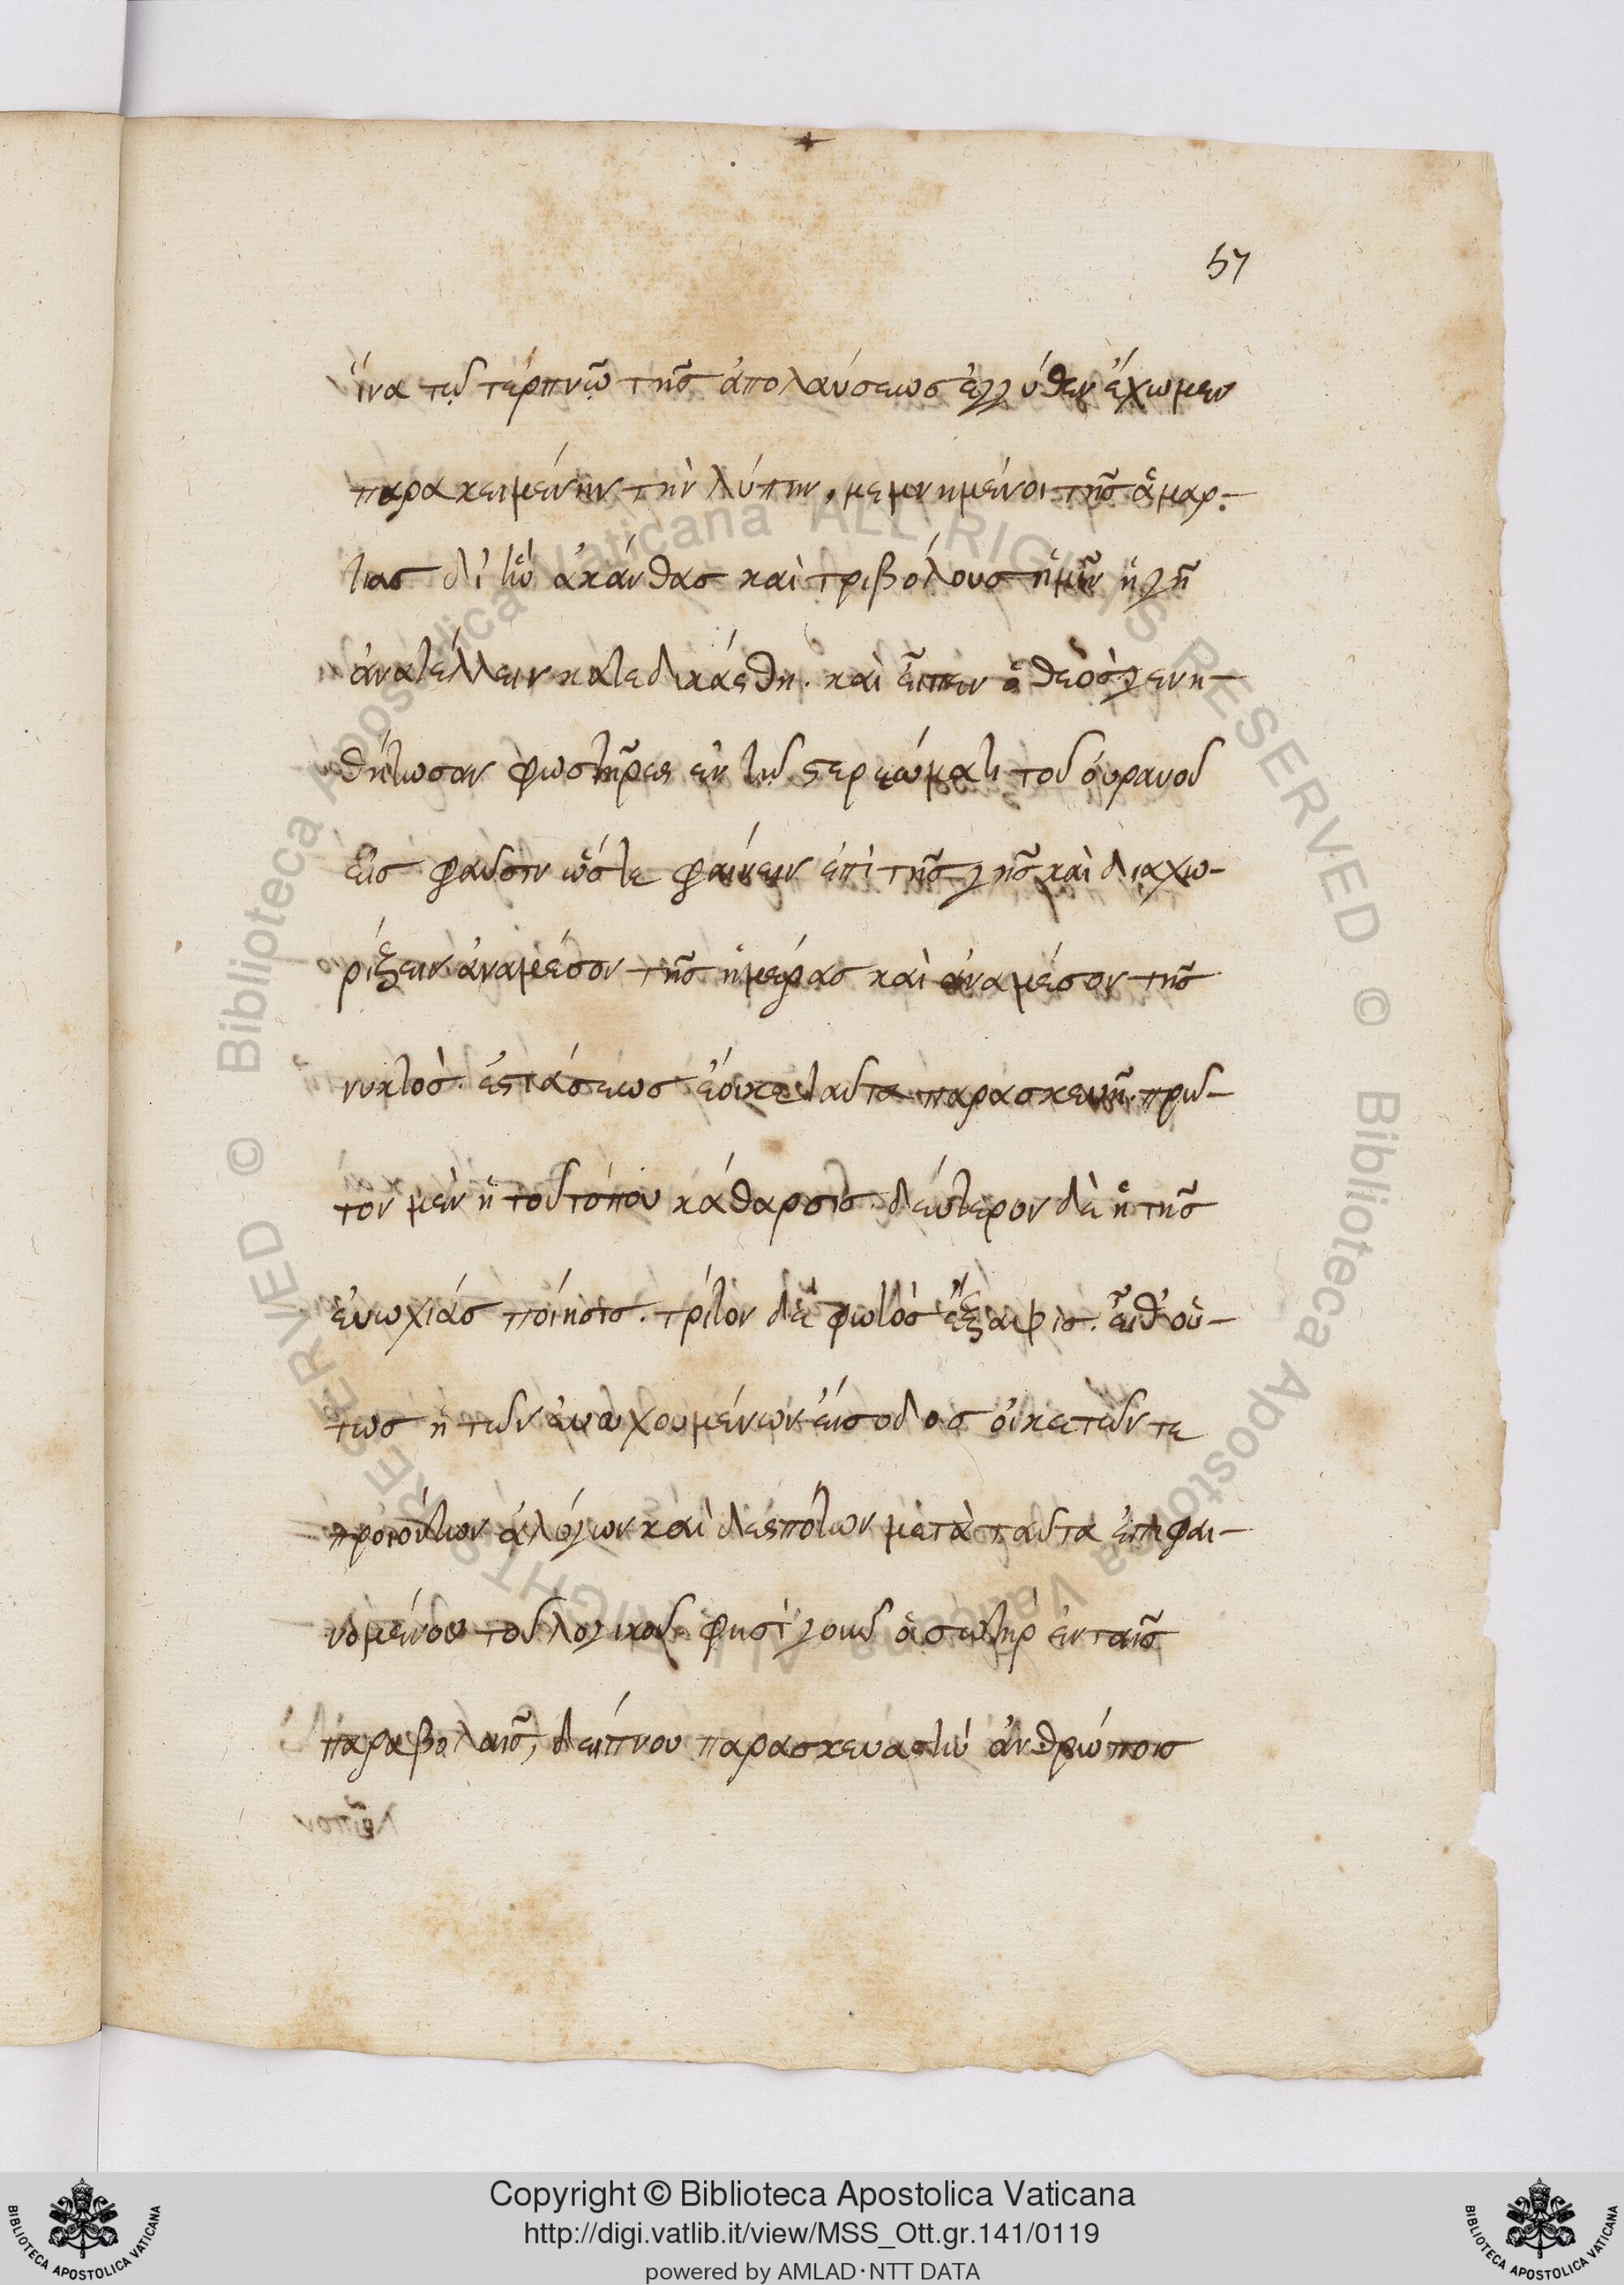 57
ἵνα τῷ τέρπνῷ τῆς ἀπολαύσεως ἐγγύθεν ἔχωμεν
παρακειμένην τὴν λύπην, μεμνημένοι τῆς ἁμαρ-
τίας δι' ἣν ἀκάνθας καὶ τριβόλους ἡμῖν ἡ γῆ
ἀνατέλλειν κατεδικάσθη. καὶ εἶπεν ὁ θεὸς γενη-
θήτωσαν φωστῆρες ἐν τῷ στερεώματι τοῦ οὐρανοῦ
εἰς φαῦσιν ὥστε φαίνειν ἐπὶ τῆς γῆς καὶ διαχω-
ρίζειν ἀναμέσον τῆς ἡμέρας καὶ ἀναμέσον τῆς
νυκτός. ἑστιάσεως ἔοικε ταῦτα παρασκευῇ. πρῶ-
τον μὲν ἡ τοῦ τόπου κάθαρσις. δεύτερον δὲ ἡ τῆς
εὐωχίας ποίησις. τρίτον δὲ ἡ φωτὸς ἔξαψις. εἶθ' οὕ-
τως ἡ τῶν εὐωχουμένων εἴσοδος οἰκετῶν τε
προϊόντων ἀλόγων καὶ δεσπότων μετὰ ταῦτα ἐπιφαι-
νομένου τοῦ λογικοῦ. φησὶ γοῦν ὁ σωτὴρ ἐν ταῖς
παραβολαῖς, δείπνου παρασκευαστὴν ἀνθρώποις
Copyright © Biblioteca Apostolica Vaticana
http://digi.vatlib.it/view/MSS_Ott.gr.141/0119
powered by AMLAD·NTT DATA
BIBLIOTECA APOSTOLICA VATICANA
BIBLIOTECA APOSTOLICA VATICANA
© Biblioteca Apostolica Vaticana ALL RIGHTS RESERVED © Biblioteca Apostolica Vaticana ALL RIGHTS RESERVED